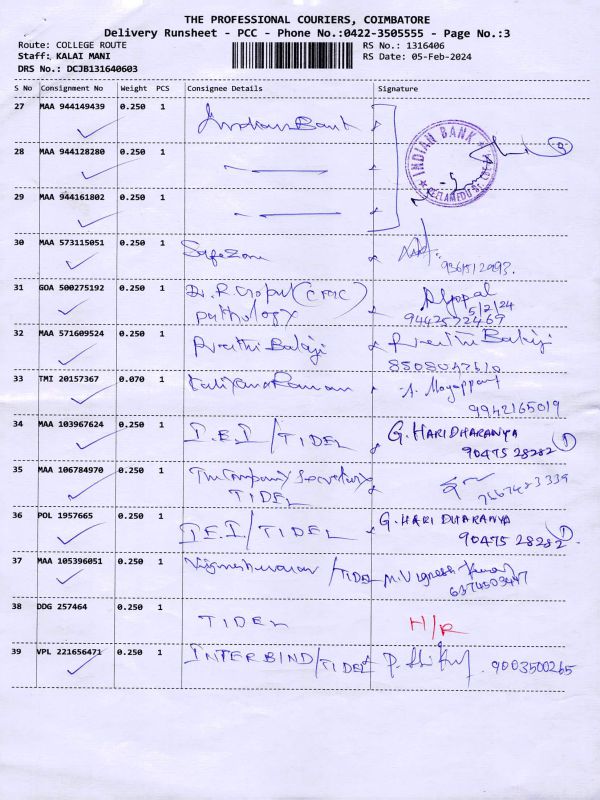 THE PROFESSIONAL COURIERS, COIMBATORE
Delivery Runsheet - PCC - Phone No.:0422-3505555 - Page No.:3
Route: COLLEGE ROUTE RS No.: 1316406
Staff: KALAI MANI RS Date: 05-Feb-2024
DRS No.: DCJB131640603
S No Consignment No Weight PCS Consignee Details Signature
27 MAA 944149439 0.250 1 Indian Bank
INDIAN BANK
28 MAA 944128280 0.250 1
29 MAA 944161802 0.250 1
30 MAA 573115051 0.250 1 Safezone
31 GOA 500275192 0.250 1 Dr. R. Gopal (CFMC) RGopal
pathology 5/2/24
9442572469
32 MAA 571609524 0.250 1 Preethi Balaji Preethi Balaji
33 TMI 20157367 0.070 1 Kaliyana Raman
9942165019
34 MAA 103967624 0.250 1 D.E.I/TIDEL G. HARIDHARANYA
90475 28282 1
35 MAA 106784970 0.250 1 The Company Secretary
TIDEL
36 POL 1957665 0.250 1 D.E.I/TIDEL G. HARI DHARANYA
90475 28282 1
37 MAA 105396051 0.250 1 Vigneshwaran /TIDEL M. Vignesh Kumar
38 DDG 257464 0.250 1 TIDEL H/R
39 VPL 221656471 0.250 1 INTERBIND/TIDEL 9003500265